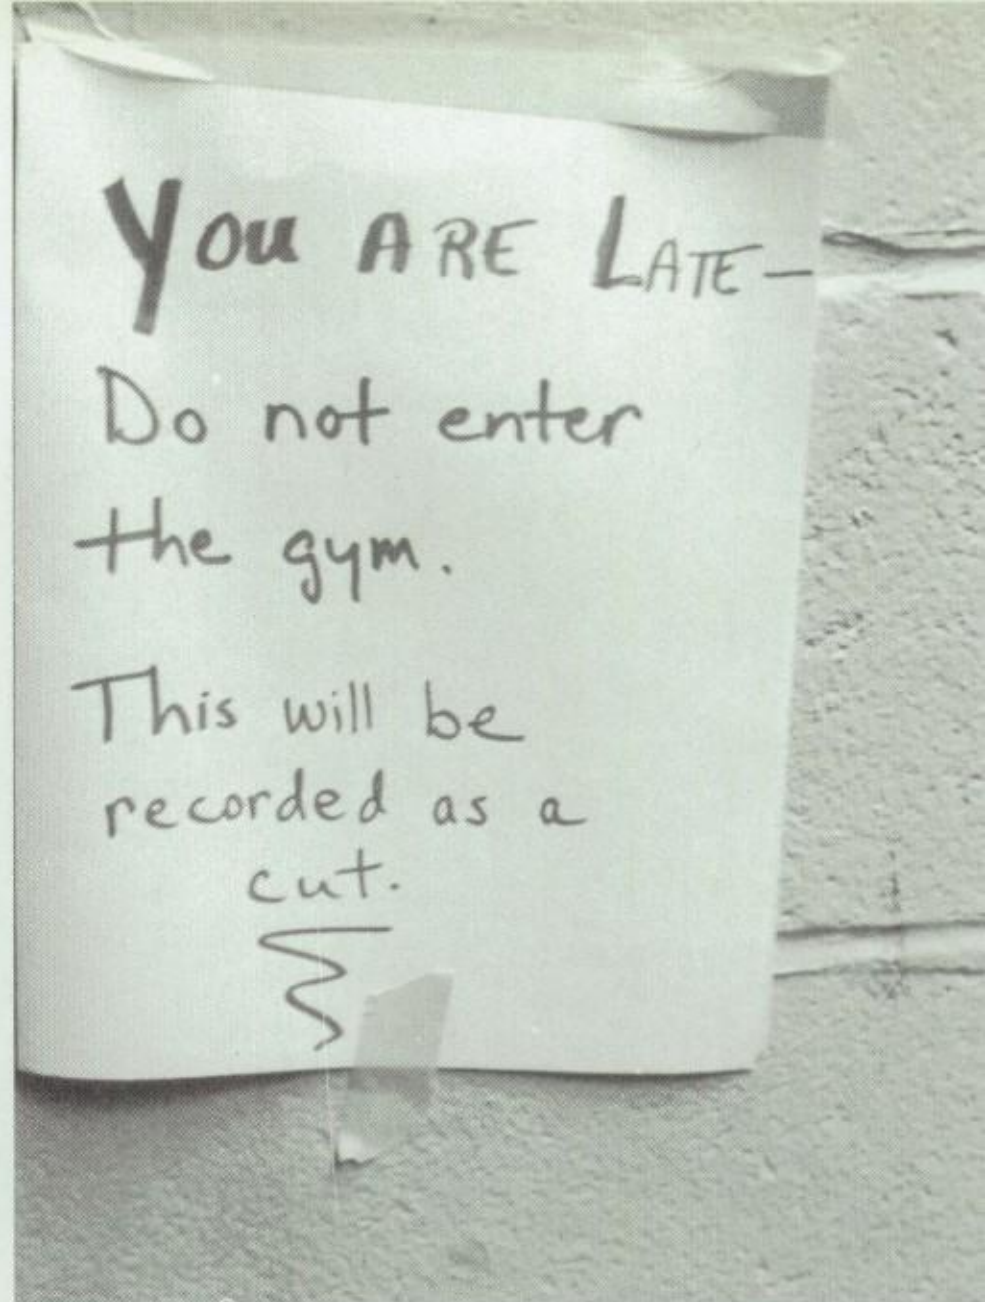 You ARE LATE—
Do not enter
the gym.
This will be
recorded as a
cut.